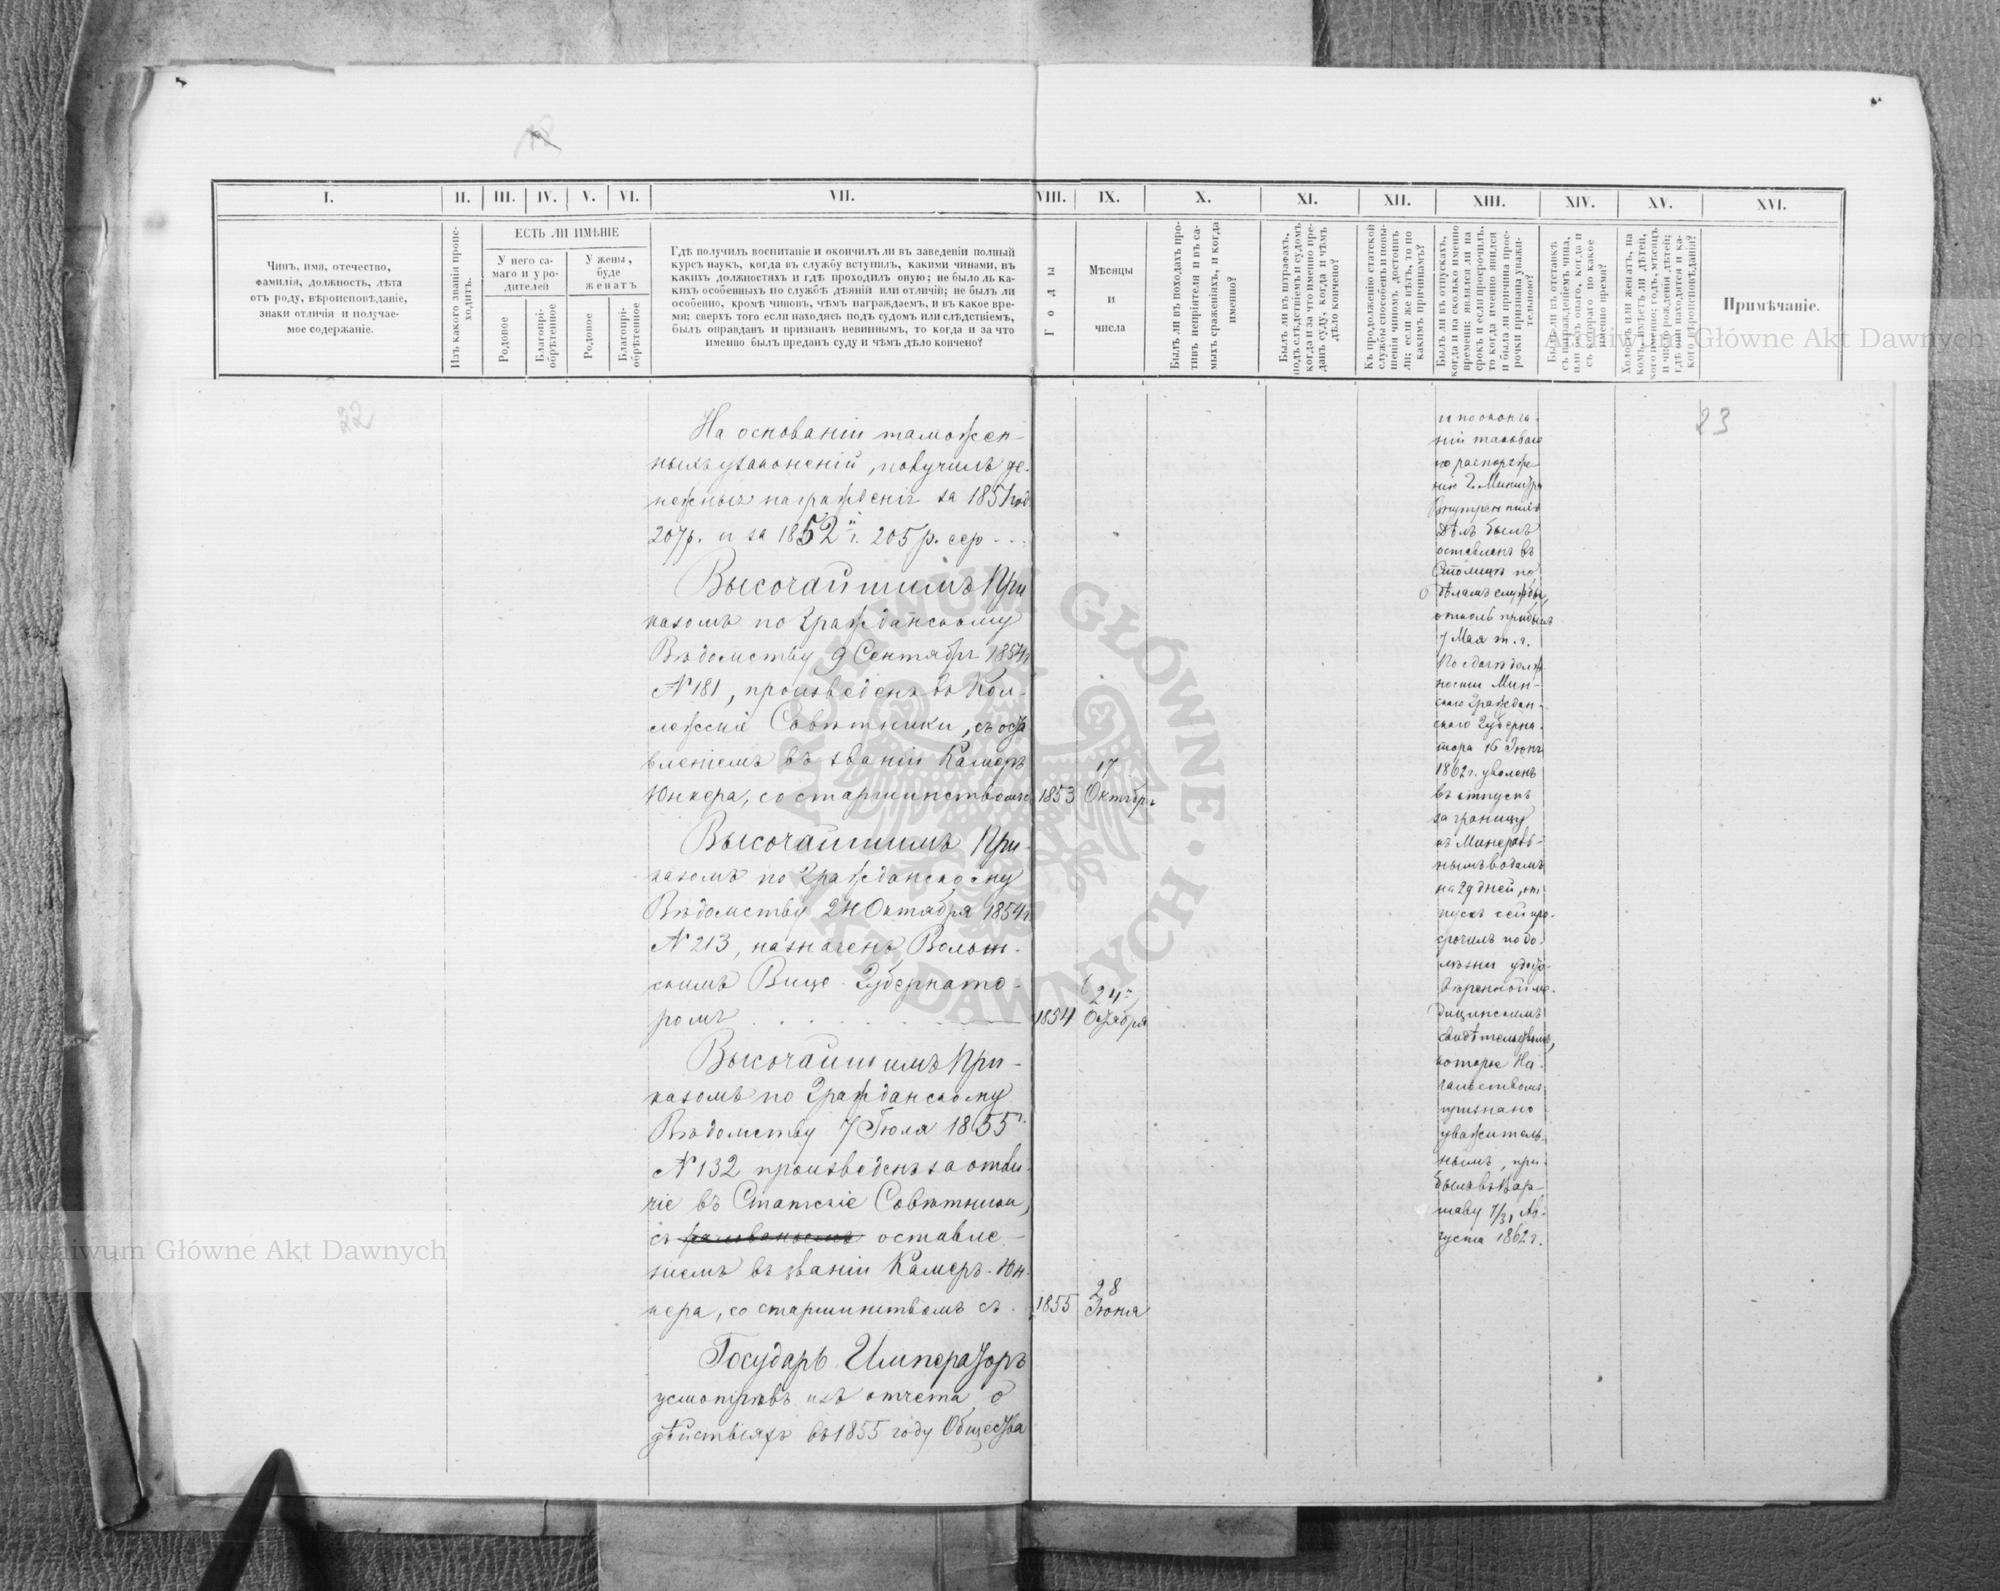 I. II. III. IV. V. VI. VII. VIII. IX. X. XI. XII. XIII. XIV. XV. XVI.
Чинъ, имя, отечество,
фамилія, должность, лѣта
отъ роду, вѣроисповѣданіе,
знаки отличія и получае-
мое содержаніе.
Изъ какого званія проис-
ходитъ.
ЕСТЬ ЛИ ИМѢНІЕ
У него са-
маго и у ро-
дителей
У жены,
буде
женатъ
Родовое
Благопрі-
обрѣтенное
Родовое
Благопрі-
обрѣтенное
Гдѣ получилъ воспитаніе и окончилъ ли въ заведеніи полный
курсъ наукъ, когда въ службу вступилъ, какими чинами, въ
какихъ должностяхъ и гдѣ проходилъ оную; не было ль ка-
кихъ особенныхъ по службѣ дѣяній или отличій; не былъ ли
особенно, кромѣ чиновъ, чѣмъ награждаемъ, и въ какое вре-
мя; сверхъ того если находясь подъ судомъ или слѣдствіемъ,
былъ оправданъ и признанъ невиннымъ, то когда и за что
именно былъ преданъ суду и чѣмъ дѣло кончено?
Годы
Мѣсяцы
и
числа
Былъ ли въ походахъ про-
тивъ непріятеля и въ са-
мыхъ сраженіяхъ, и когда
именно?
Былъ ли въ штрафахъ,
подъ слѣдствіемъ и судомъ,
когда и за что именно пре-
данъ суду, когда и чѣмъ
дѣло кончено?
Къ продолженію статской
службы способенъ и повы-
шенія чиномъ достоинъ
ли; если же нѣтъ, то по
какимъ причинамъ?
Былъ ли въ отпускахъ,
когда и на сколько именно
времени; являлся ли на
срокъ и если просрочилъ,
то когда именно явился
и была ли причина прос-
рочки признана уважи-
тельною?
Былъ ли въ отставкѣ
съ награжденіемъ чина,
или безъ онаго, когда и
съ котораго по какое
именно время?
Холостъ или женатъ, на
комъ, имѣетъ ли дѣтей,
кого именно; годъ, мѣсяцъ
и число рожденія дѣтей;
гдѣ они находятся и ка-
кого вѣроисповѣданія?
Примѣчаніе.
22
На основаніи таможен-
ныхъ узаконеній, получилъ де-
нежныя награжденія за 1851 год
207р. и за 1852й г. 205 р. сер
Высочайшимъ При
казомъ по Гражданскому
Вѣдомству 9 Сентября 1854г
№ 181, произведенъ въ Кол-
лежскіе Совѣтники, съ оста
вленіемъ въ званіи Камеръ
Юнкера, со старшинствомъ съ 1853 17 Октября
Высочайшимъ При-
казомъ по Гражданскому
Вѣдомству 24 Октября 1854г
№ 213, назначенъ Волын-
скимъ Вице-Губернато-
ромъ 1854 24 Октября
Высочайшимъ При-
казомъ по Гражданскому
Вѣдомству 7 Іюля 1855г.
№ 132 произведенъ за отли-
чіе въ Статскіе Совѣтники,
съ оставле-
ніемъ въ званіи Камеръ-Юн-
кера, со старшинствомъ съ 1855 28 Іюня
Государь Императоръ
усмотрѣвъ изъ отчета о
дѣйствіяхъ въ 1855 году Общества
и по оконча-
ніи таковаго
по распоряже-
нію Г. Министра
Внутреннихъ
Дѣлъ былъ
оставленъ въ
Столицѣ по
дѣламъ службы,
откуль прибылъ
7 Мая т. г.
По сдачѣ долж
ности Мин-
скаго Граждан-
скаго Губерна-
тора 16 Іюня
1862 г. уволенъ
въ отпускъ
за границу
къ Минераль-
нымъ водамъ
на 29 дней, от
пускъ сей про-
срочилъ по бо-
лѣзни удосто-
вѣренной ме-
дицинскимъ
свидѣтельствомъ,
которое На-
чальствомъ
признано
уважитель-
нымъ, при-
былъ въ Вар-
шаву 7/31 Ав-
густа 1862 г.
23
Archiwum Główne Akt Dawnych
Archiwum Główne Akt Dawnych
ARCHIWUM GŁÓWNE AKT DAWNYCH